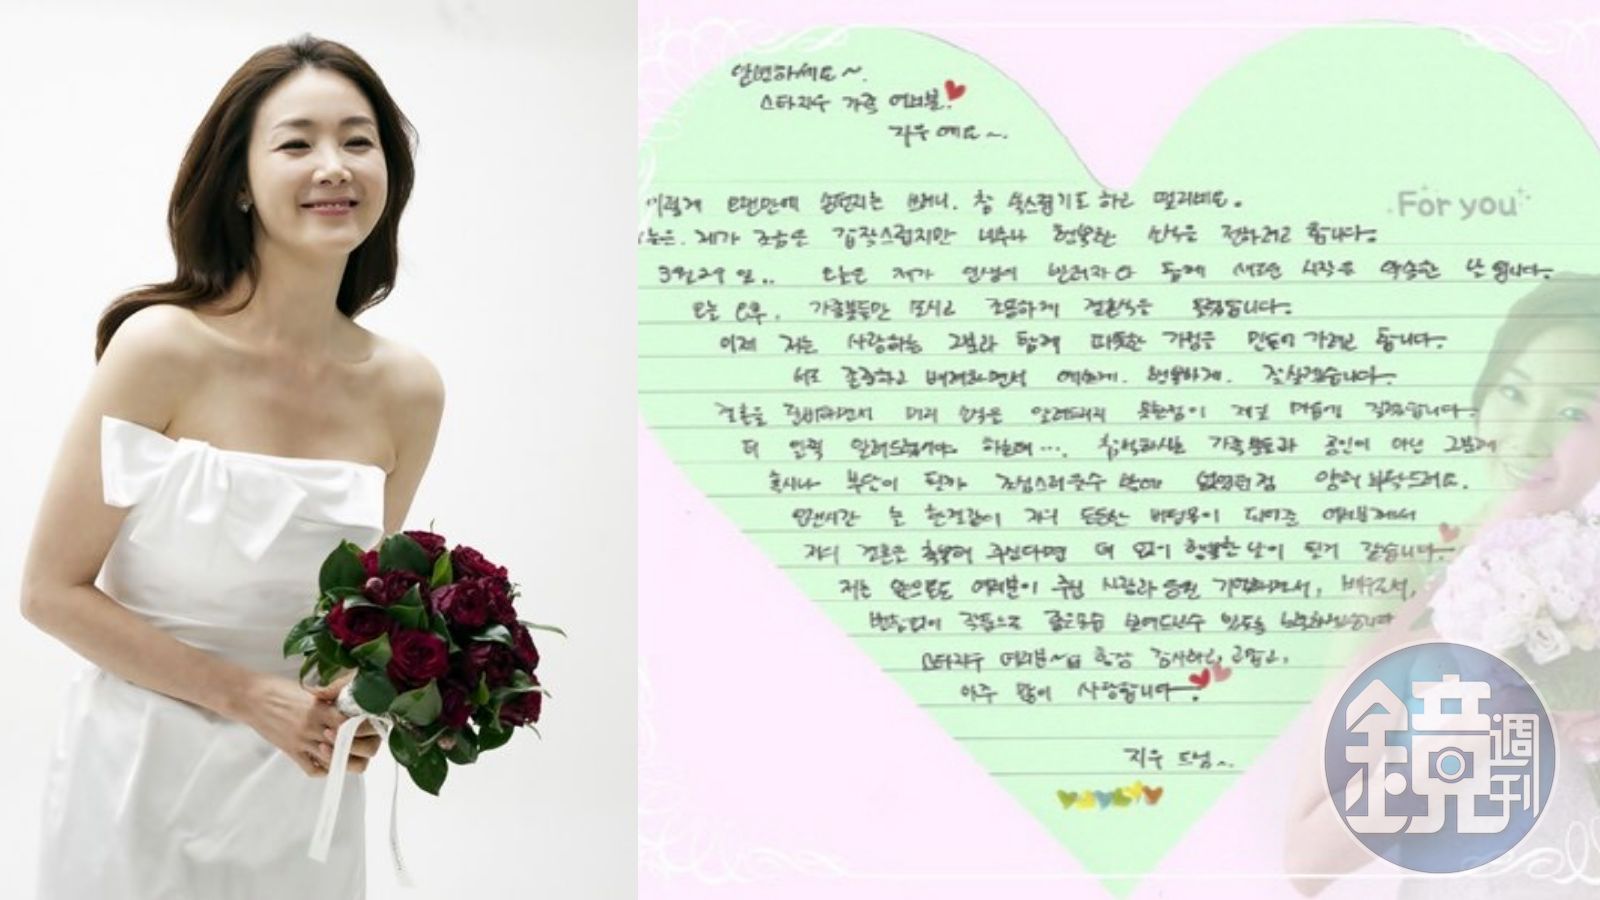 안녕하세요~.
스타지우 가족 여러분.
지우예요~.
For you
이렇게 오랜만에 손편지를 쓰려니. 참 쑥스럽기도 하고 떨리네요.
오늘은. 제가 조금은 갑작스럽지만 너무나 행복한 소식을 전하려고 합니다.
3월29일.. 오늘은 제가 인생의 반려자와 함께 새로운 시작을 약속한 날입니다.
오늘 오후. 가족분들만 모시고 조용하게 결혼식을 올렸습니다.
이제 저는 사랑하는 그분과 함께 따뜻한 가정을 만들어 가려 합니다.
서로 존중하고 배려하면서 예쁘게. 행복하게. 잘살겠습니다.
결혼을 준비하면서 미리 소식을 알려드리지 못한점이 제일 마음에 걸렸습니다.
더 일찍 알려드렸어야 하는데…. 참석하시는 가족분들과 공인이 아닌 그분께
혹시나 부담이 될까 조심스러울수 밖에 없었던점 양해 부탁드려요.
오랜시간 늘 한결같이 저의 든든한 버팀목이 되어준 여러분께서
저의 결혼을 축복해 주신다면 더 없이 행복한 날이 될거 같습니다.
저는 앞으로도 여러분이 주신 사랑과 응원 기억하면서, 배우로서,
변함없이 작품으로 좋은모습 보여드릴수 있도록 노력하겠습니다
스타지우 여러분~ 항상 감사하고, 고맙고,
아주 많이 사랑합니다.
지우 드림~.
鏡週刊